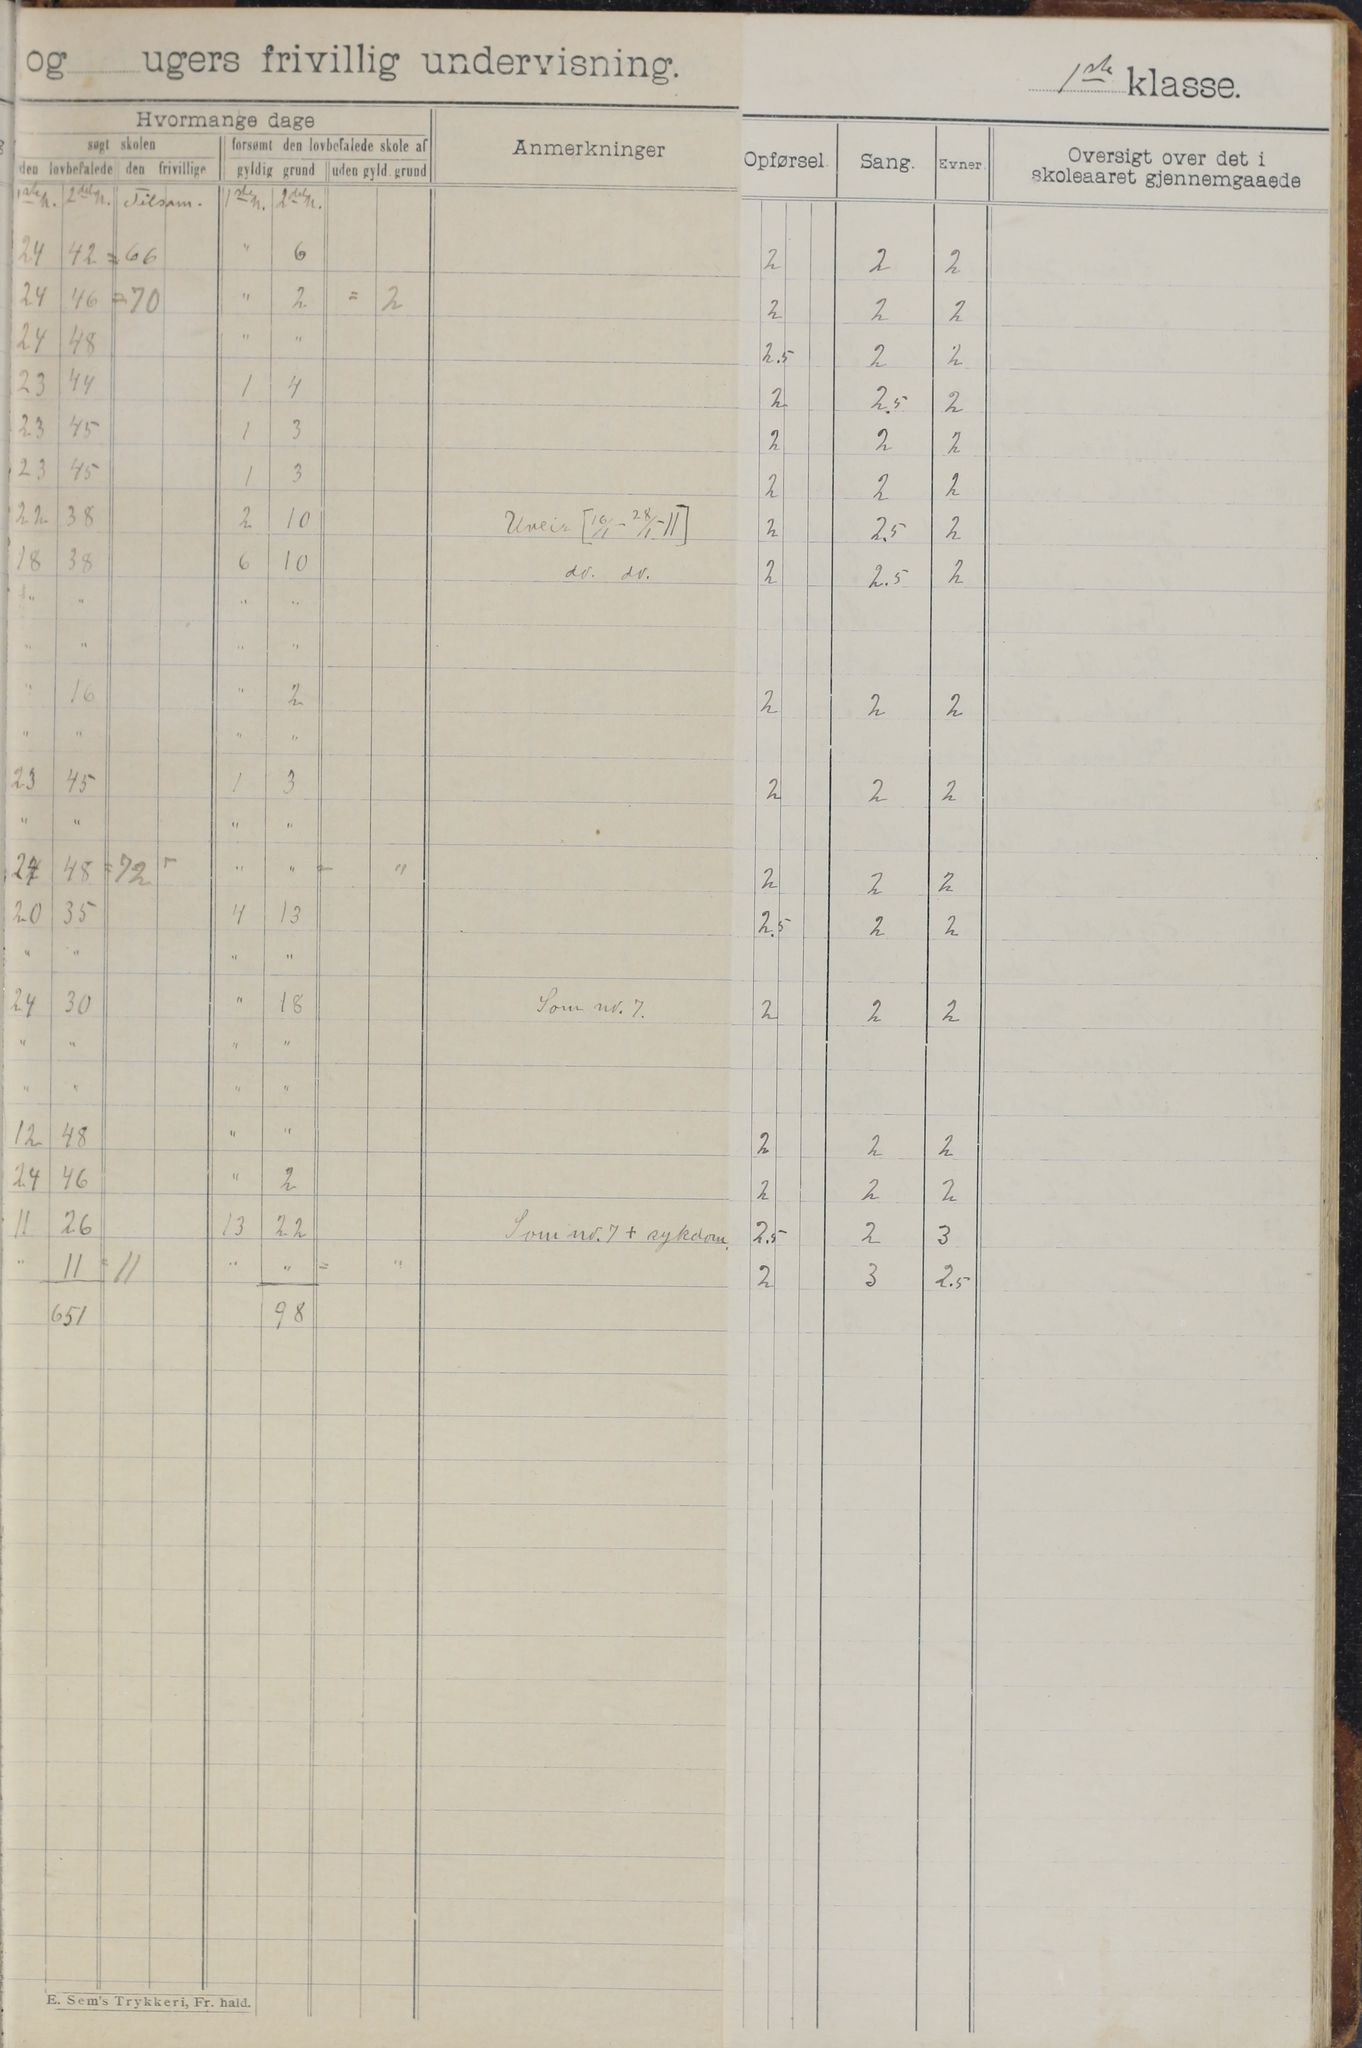 og ugers frivillig undervisning. 1ste klasse.
Hvormange dage
søgt skolen forsømt den lovbefalede skole af Anmerkninger Opførsel. Sang. Evner. Oversigt over det i
den lovbefalede den frivillige gyldig grund uden gyld. grund skoleaaret gjennemgaaede
1ste h. 2del h. Tilsam. 1ste h. 2del h.
24 42 = 66 " 6 2 2 2
24 46 = 70 " 2 = 2 2 2 2
24 48 " " 2.5 2 2
23 44 1 4 2 2.5 2
23 45 1 3 2 2 2
23 45 1 3 2 2 2
22 38 2 10 Uveir [16/1 - 28/1 - 11] 2 2.5 2
18 38 6 10 do. do. 2 2.5 2
" " " "
" " " "
" 16 " 2 2 2 2
" " " "
23 45 1 3 2 2 2
" " " "
24 48 = 72 " " = " 2 2 2
20 35 4 13 2.5 2 2
" " " "
24 30 " 18 Som no. 7. 2 2 2
" " " "
" " " "
12 48 " " 2 2 2
24 46 " 2 2 2 2
11 26 13 22 Som no. 7 + sykdom. 2.5 2 3
" 11 = 11 " " = " 2 3 2.5
651 98
E. Sem's Trykkeri, Fr. hald.